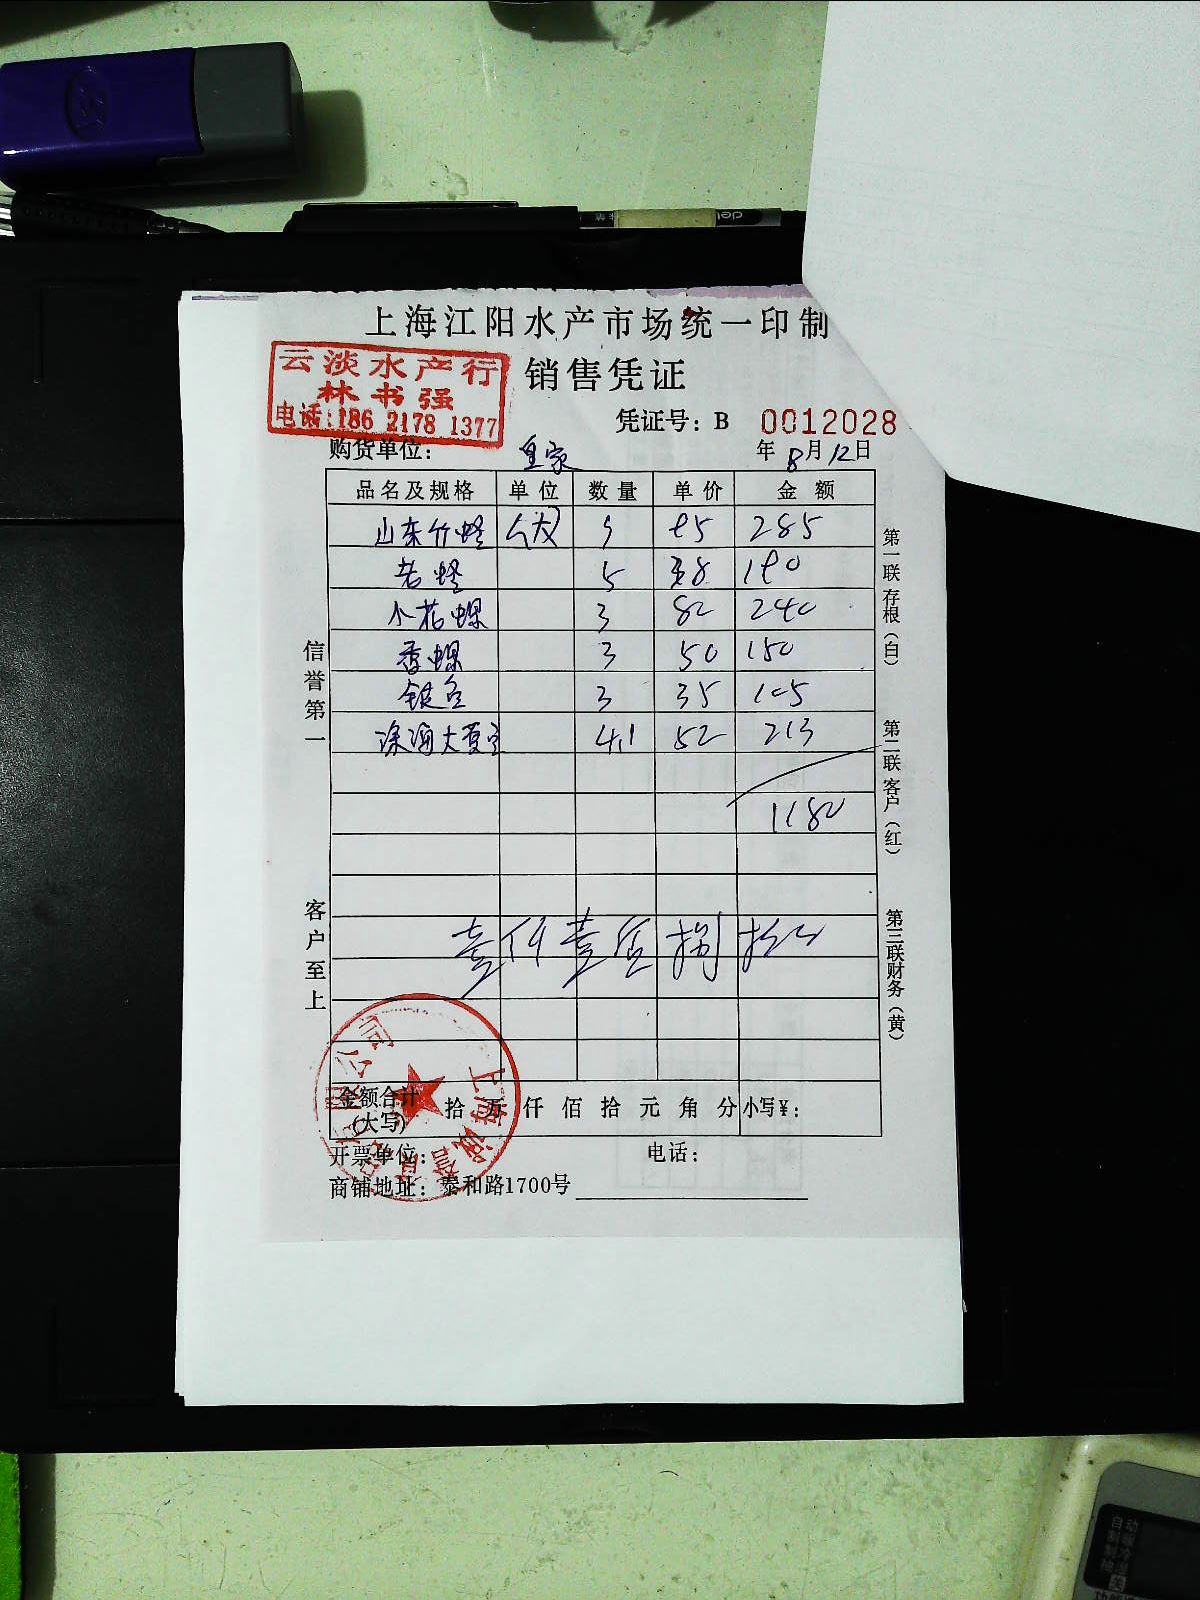 上海江阳水产市场统一印制
云淡水产行
林书强
电话:186 2178 1377
销售凭证
凭证号: B 0012028
购货单位: 皇家 年 8月12日
品名及规格 单位 数量 单价 金额
山东竹蛏 285
老蛏 5 38 190
小花螺 3 80 240
香螺 3 50 150
3 35 105
深海大 4.1 52 213
1180
壹仟壹百捌拾
信誉第一
客户至上
第一联存根(白)
第二联客户(红)
第三联财务(黄)
金额合计(大写) 拾万仟佰拾元角分 小写¥:
开票单位: 电话:
商铺地址: 泰和路1700号